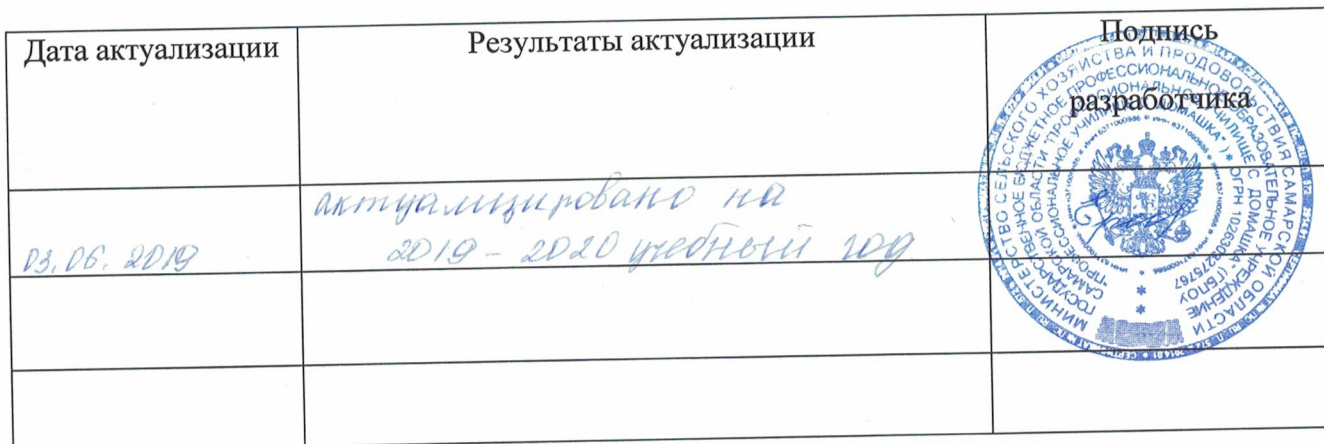 Дата актуализации
Результаты актуализации
Подпись
разработчика
03.06.2019
актуализировано на
2019 - 2020 учебный год
МИНИСТЕРСТВО СЕЛЬСКОГО ХОЗЯЙСТВА И ПРОДОВОЛЬСТВИЯ САМАРСКОЙ ОБЛАСТИ
ГОСУДАРСТВЕННОЕ БЮДЖЕТНОЕ ПРОФЕССИОНАЛЬНОЕ ОБРАЗОВАТЕЛЬНОЕ УЧРЕЖДЕНИЕ
САМАРСКОЙ ОБЛАСТИ "ПРОФЕССИОНАЛЬНОЕ УЧИЛИЩЕ С. ДОМАШКА" (ГБПОУ
"ПРОФЕССИОНАЛЬНОЕ УЧИЛИЩЕ С. ДОМАШКА") * ОГРН